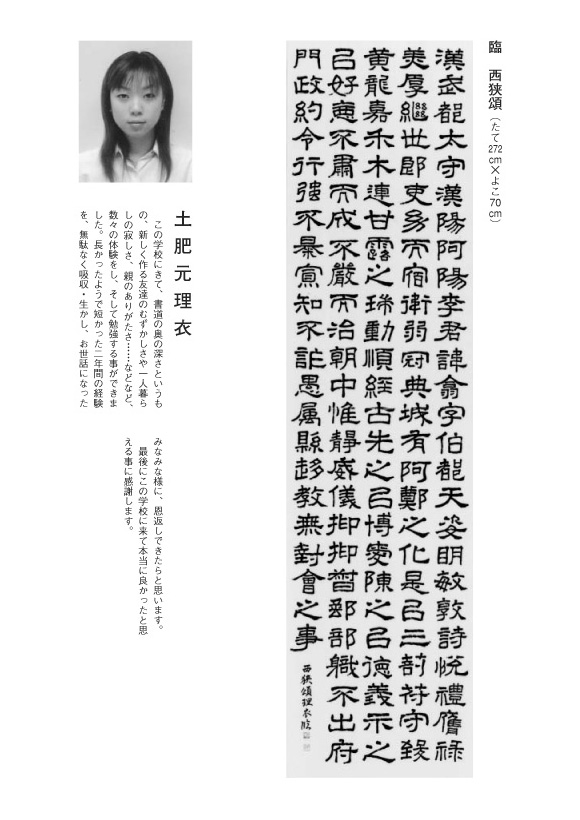 臨　西狭頌（たて272cm×よこ70cm）
漢武都太守漢陽阿陽李君諱翕字伯都天姿明敏敦詩悦禮膺祿
美厚繼世郎吏幼而宿衛弱冠典城有阿鄭之化是㠯三剖符守致
黄龍嘉禾木連甘露之瑞動順經古先之㠯博愛陳之㠯徳義示之
㠯好惡不肅而成不嚴而治朝中惟靜威儀抑抑督郵部職不出府
門政約令行強不暴寡知不詐愚属縣趍教無對會之事
西狭頌理衣臨
土肥元理衣
この学校にきて、書道の奥の深さというも
の、新しく作る友達のむずかしさや一人暮ら
しの寂しさ、親のありがたさ……などなど、
数々の体験をし、そして勉強する事ができま
した。長かったようで短かった二年間の経験
を、無駄なく吸収・生かし、お世話になった
みなみな様に、恩返しできたらと思います。
最後にこの学校に来て本当に良かったと思
える事に感謝します。